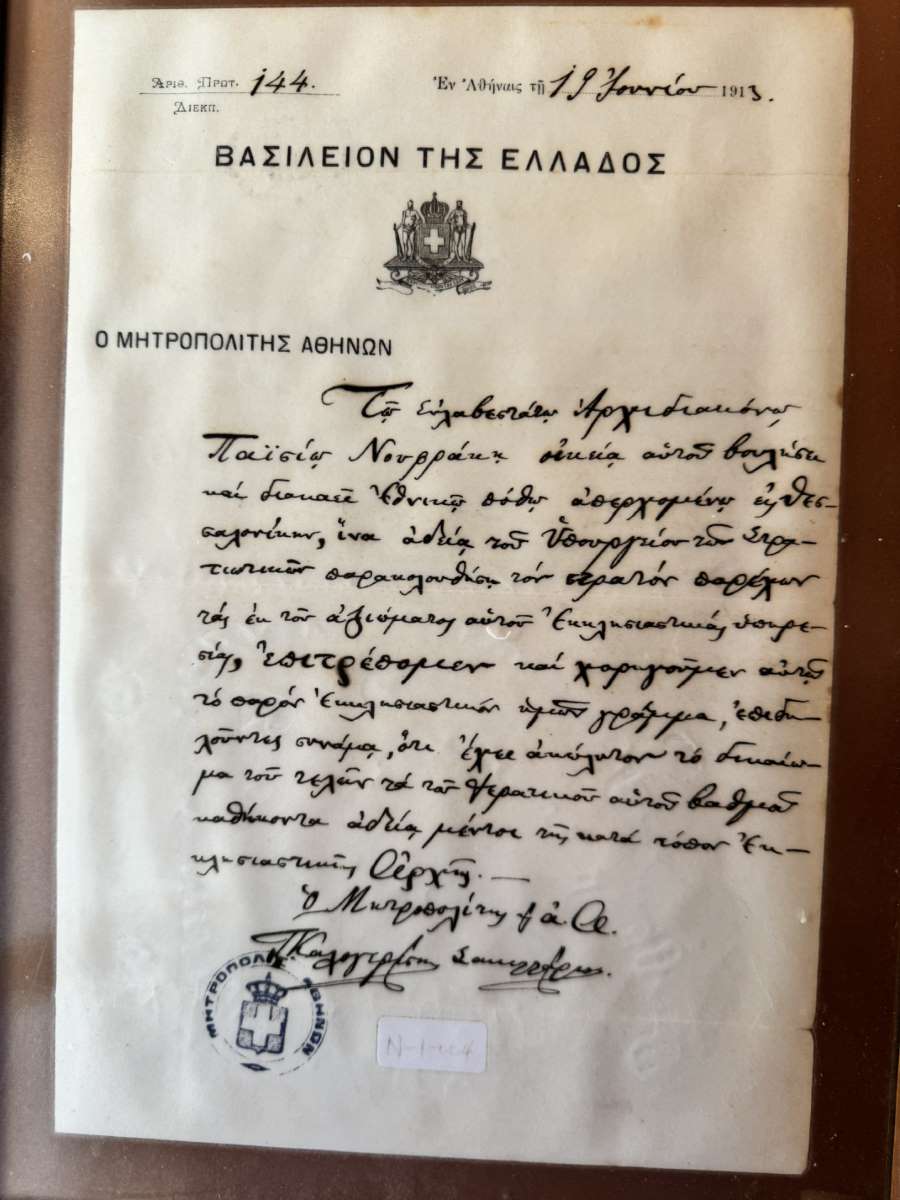 Ἀριθ. Πρωτ. 144.
Διεκπ.
Ἐν Ἀθήναις τῇ 19 Ἰουνίου 1913.
ΒΑΣΙΛΕΙΟΝ ΤΗΣ ΕΛΛΑΔΟΣ
Ο ΜΗΤΡΟΠΟΛΙΤΗΣ ΑΘΗΝΩΝ
Τῷ Εὐλαβεστάτῳ Ἀρχιδιακόνῳ
Παϊσίῳ Νουφράκῃ οἰκείᾳ αὐτοῦ βουλήσει
καί διακαεῖ ἐθνικῷ πόθῳ ἀπερχομένῳ εἰς Θεσ-
σαλονίκην, ἵνα ἀδείᾳ τοῦ Ὑπουργείου τῶν Στρα-
τιωτικῶν παρακολουθήσῃ τόν στρατόν παρέχων
τάς ἐκ τοῦ ἀξιώματος αὐτοῦ Ἐκκλησιαστικάς ὑπηρε-
σίας, ἐπιτρέπομεν καί χορηγοῦμεν αὐτῷ
τό παρόν Ἐκκλησιαστικόν ἡμῶν γράμμα, ἐπιδη-
λοῦντες συνάμα, ὅτι ἔχει ἀκώλυτον τό δικαίω-
μα τοῦ τελεῖν τά τοῦ Ἱερατικοῦ αὐτοῦ βαθμοῦ
καθήκοντα ἀδείᾳ μέντοι τῆς κατά τόπον Ἐκ-
κλησιαστικῆς Ἀρχῆς. —
Ὁ Μητροπολίτης
ΜΗΤΡΟΠΟΛΙΣ ΑΘΗΝΩΝ
N-1-004